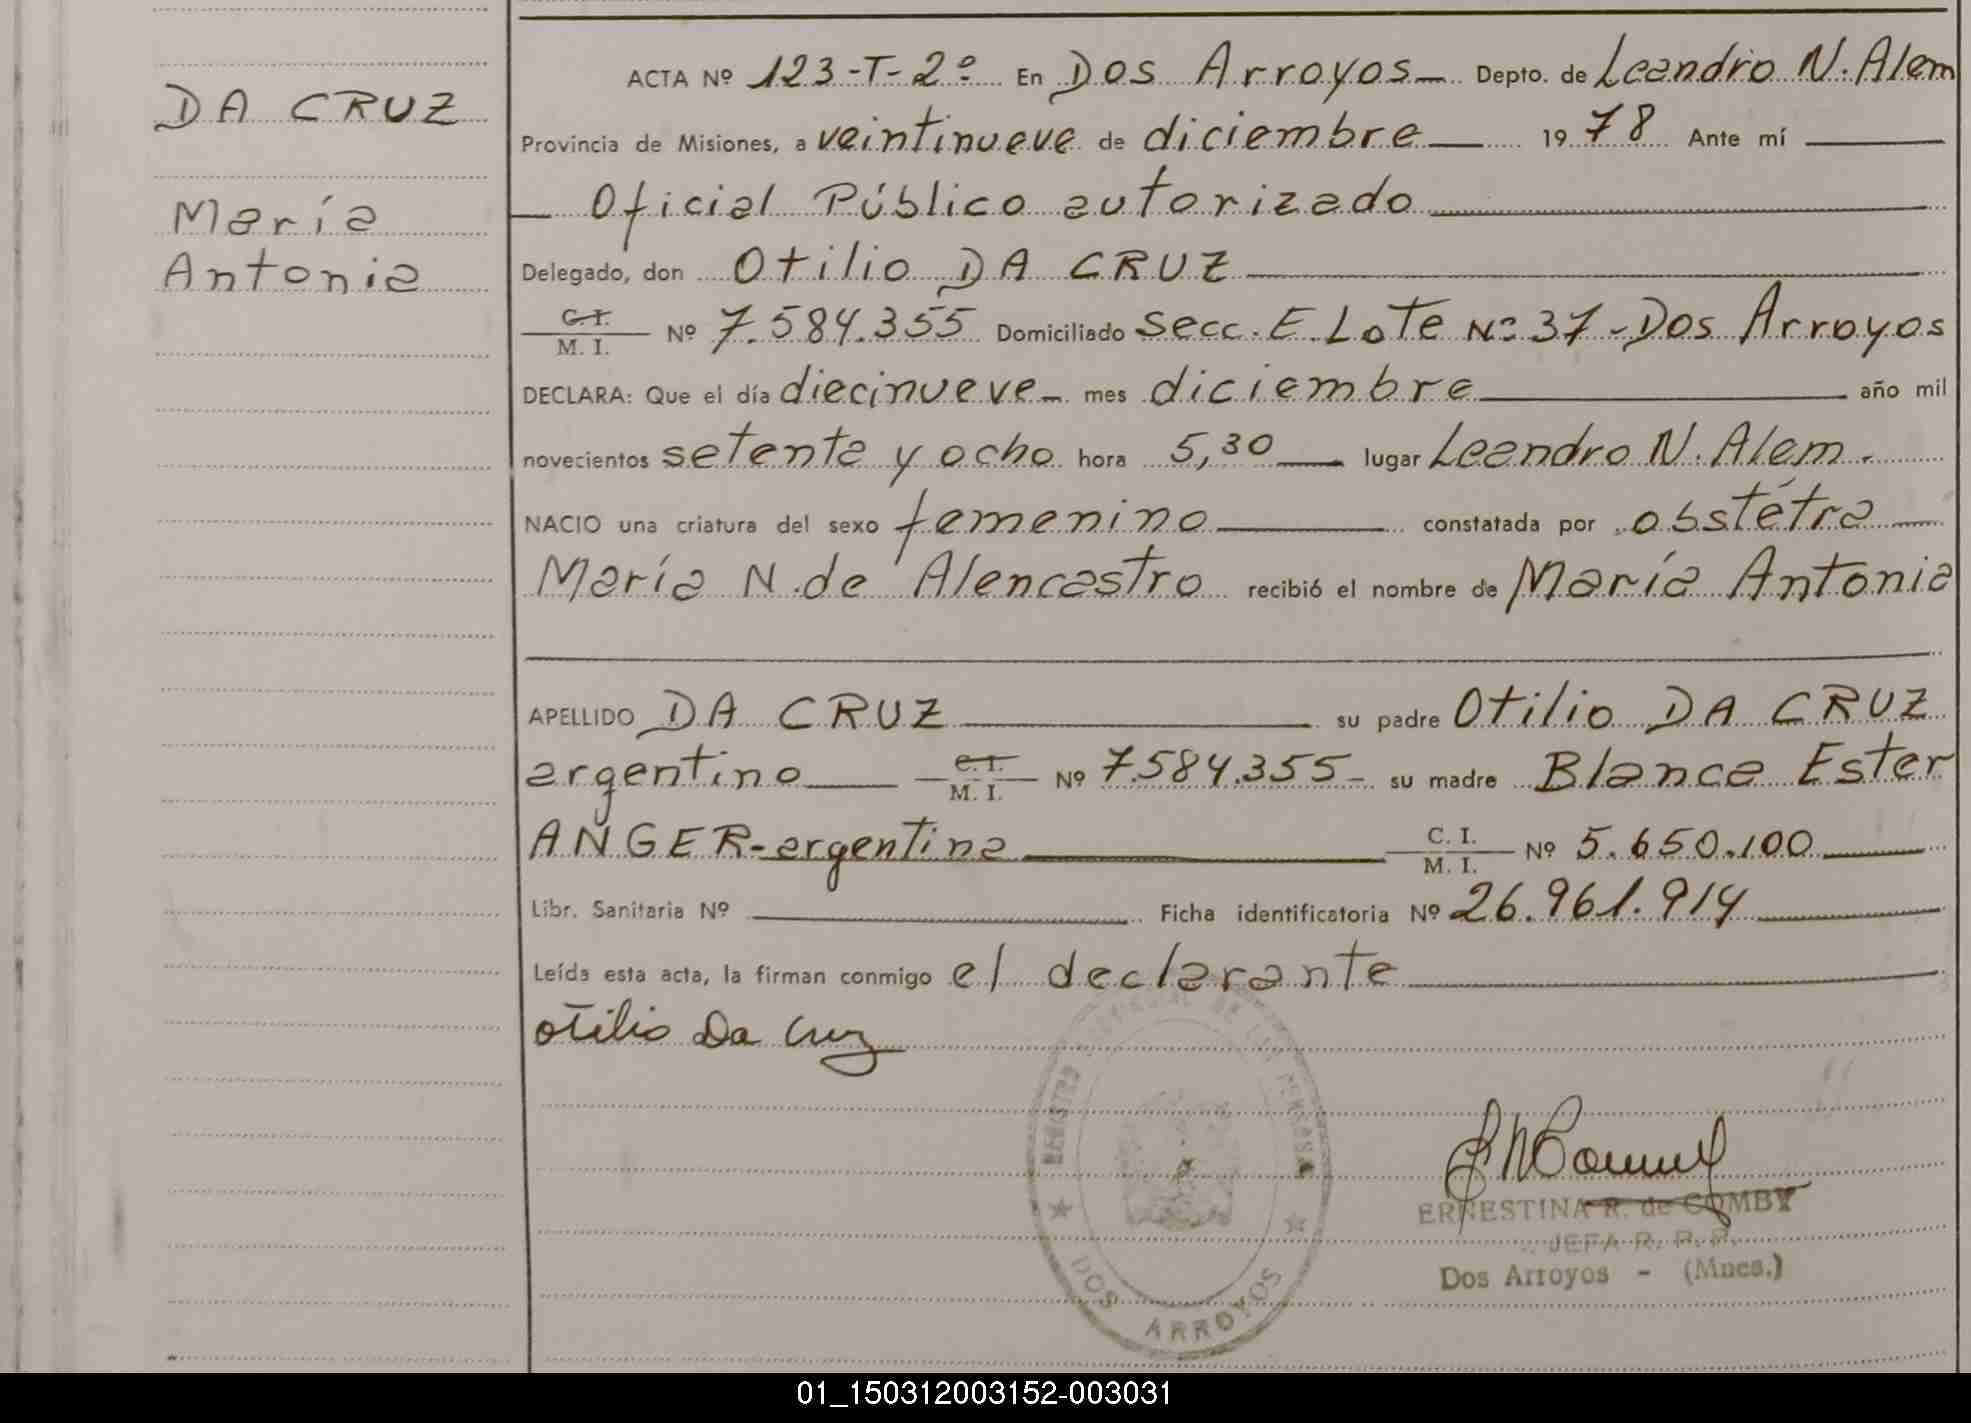 DA CRUZ
María
Antonia
ACTA Nº 123-T-2º En Dos Arroyos Depto. de Leandro N. Alem
Provincia de Misiones, a veintinueve de diciembre 1978 Ante mí
Oficial Público autorizado
Delegado, don Otilio DA CRUZ
C. I.
M. I. Nº 7.584.355 Domiciliado Secc. E Lote Nº 37 - Dos Arroyos
DECLARA: Que el día diecinueve mes diciembre año mil
novecientos setenta y ocho hora 5,30 lugar Leandro N. Alem.
NACIO una criatura del sexo femenino constatada por obstétra
María N. de Alencastro recibió el nombre de María Antonia
APELLIDO DA CRUZ su padre Otilio DA CRUZ
argentino C. I.
M. I. Nº 7.584.355- su madre Blanca Ester
ANGER-argentina C. I.
M. I. Nº 5.650.100
Libr. Sanitaria Nº Ficha identificatoria Nº 26.961.914
Leída esta acta, la firman conmigo el declarante
Otilio Da Cruz
REGISTRO PROVINCIAL DE LAS PERSONAS
DOS ARROYOS
ERNESTINA R. de COMBY
JEFA R. P. P.
Dos Arroyos - (Mnes.)
01_150312003152-003031